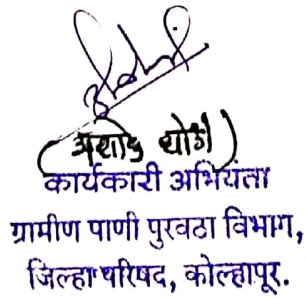 कार्यकारी अभियंता
ग्रामीण पाणी पुरवठा विभाग,
जिल्हा परिषद, कोल्हापूर.